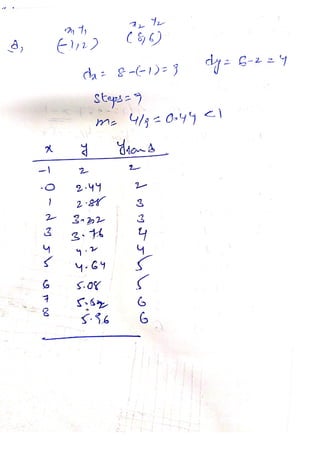 x₁ y₁ x₂ y₂
(-1,2) (8,6)
dx = 8-(-1) = 9 dy = 6-2 = 4
Steps = 9
m = 4/9 = 0.44 < 1
x y
-1 2 2
.0 2.44 2
1 2.88 3
2 3.32 3
3 3.76 4
4 4.2 4
5 4.64 5
6 5.08 5
7 5.52 6
8 5.96 6